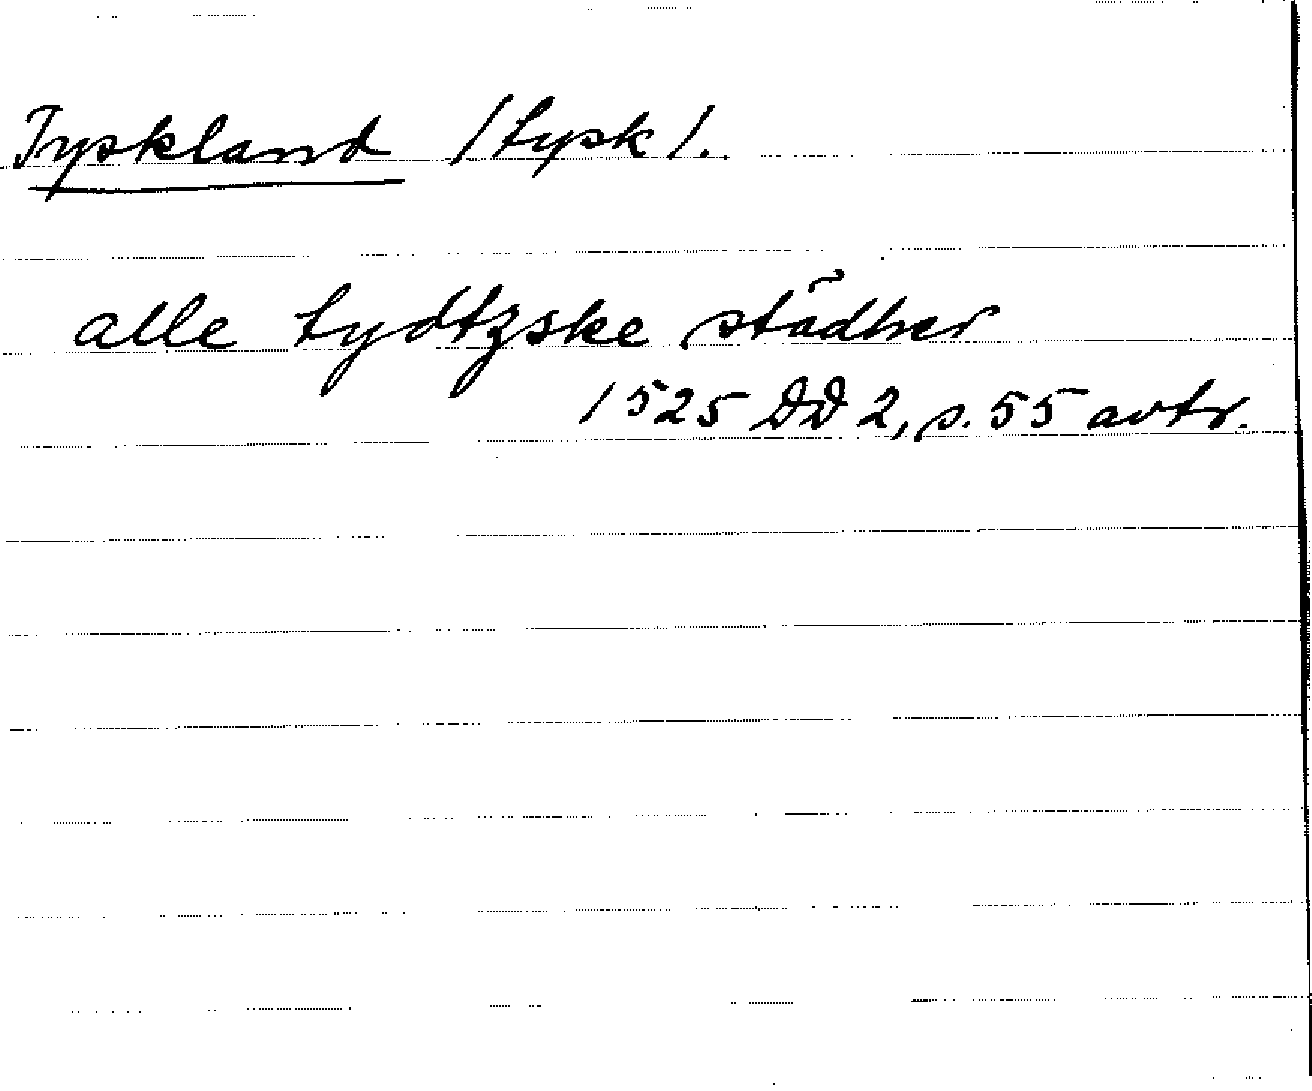 Tyskland /tysk/.
alle tydtzske städher
1525 DD 2, s. 55 avtr.